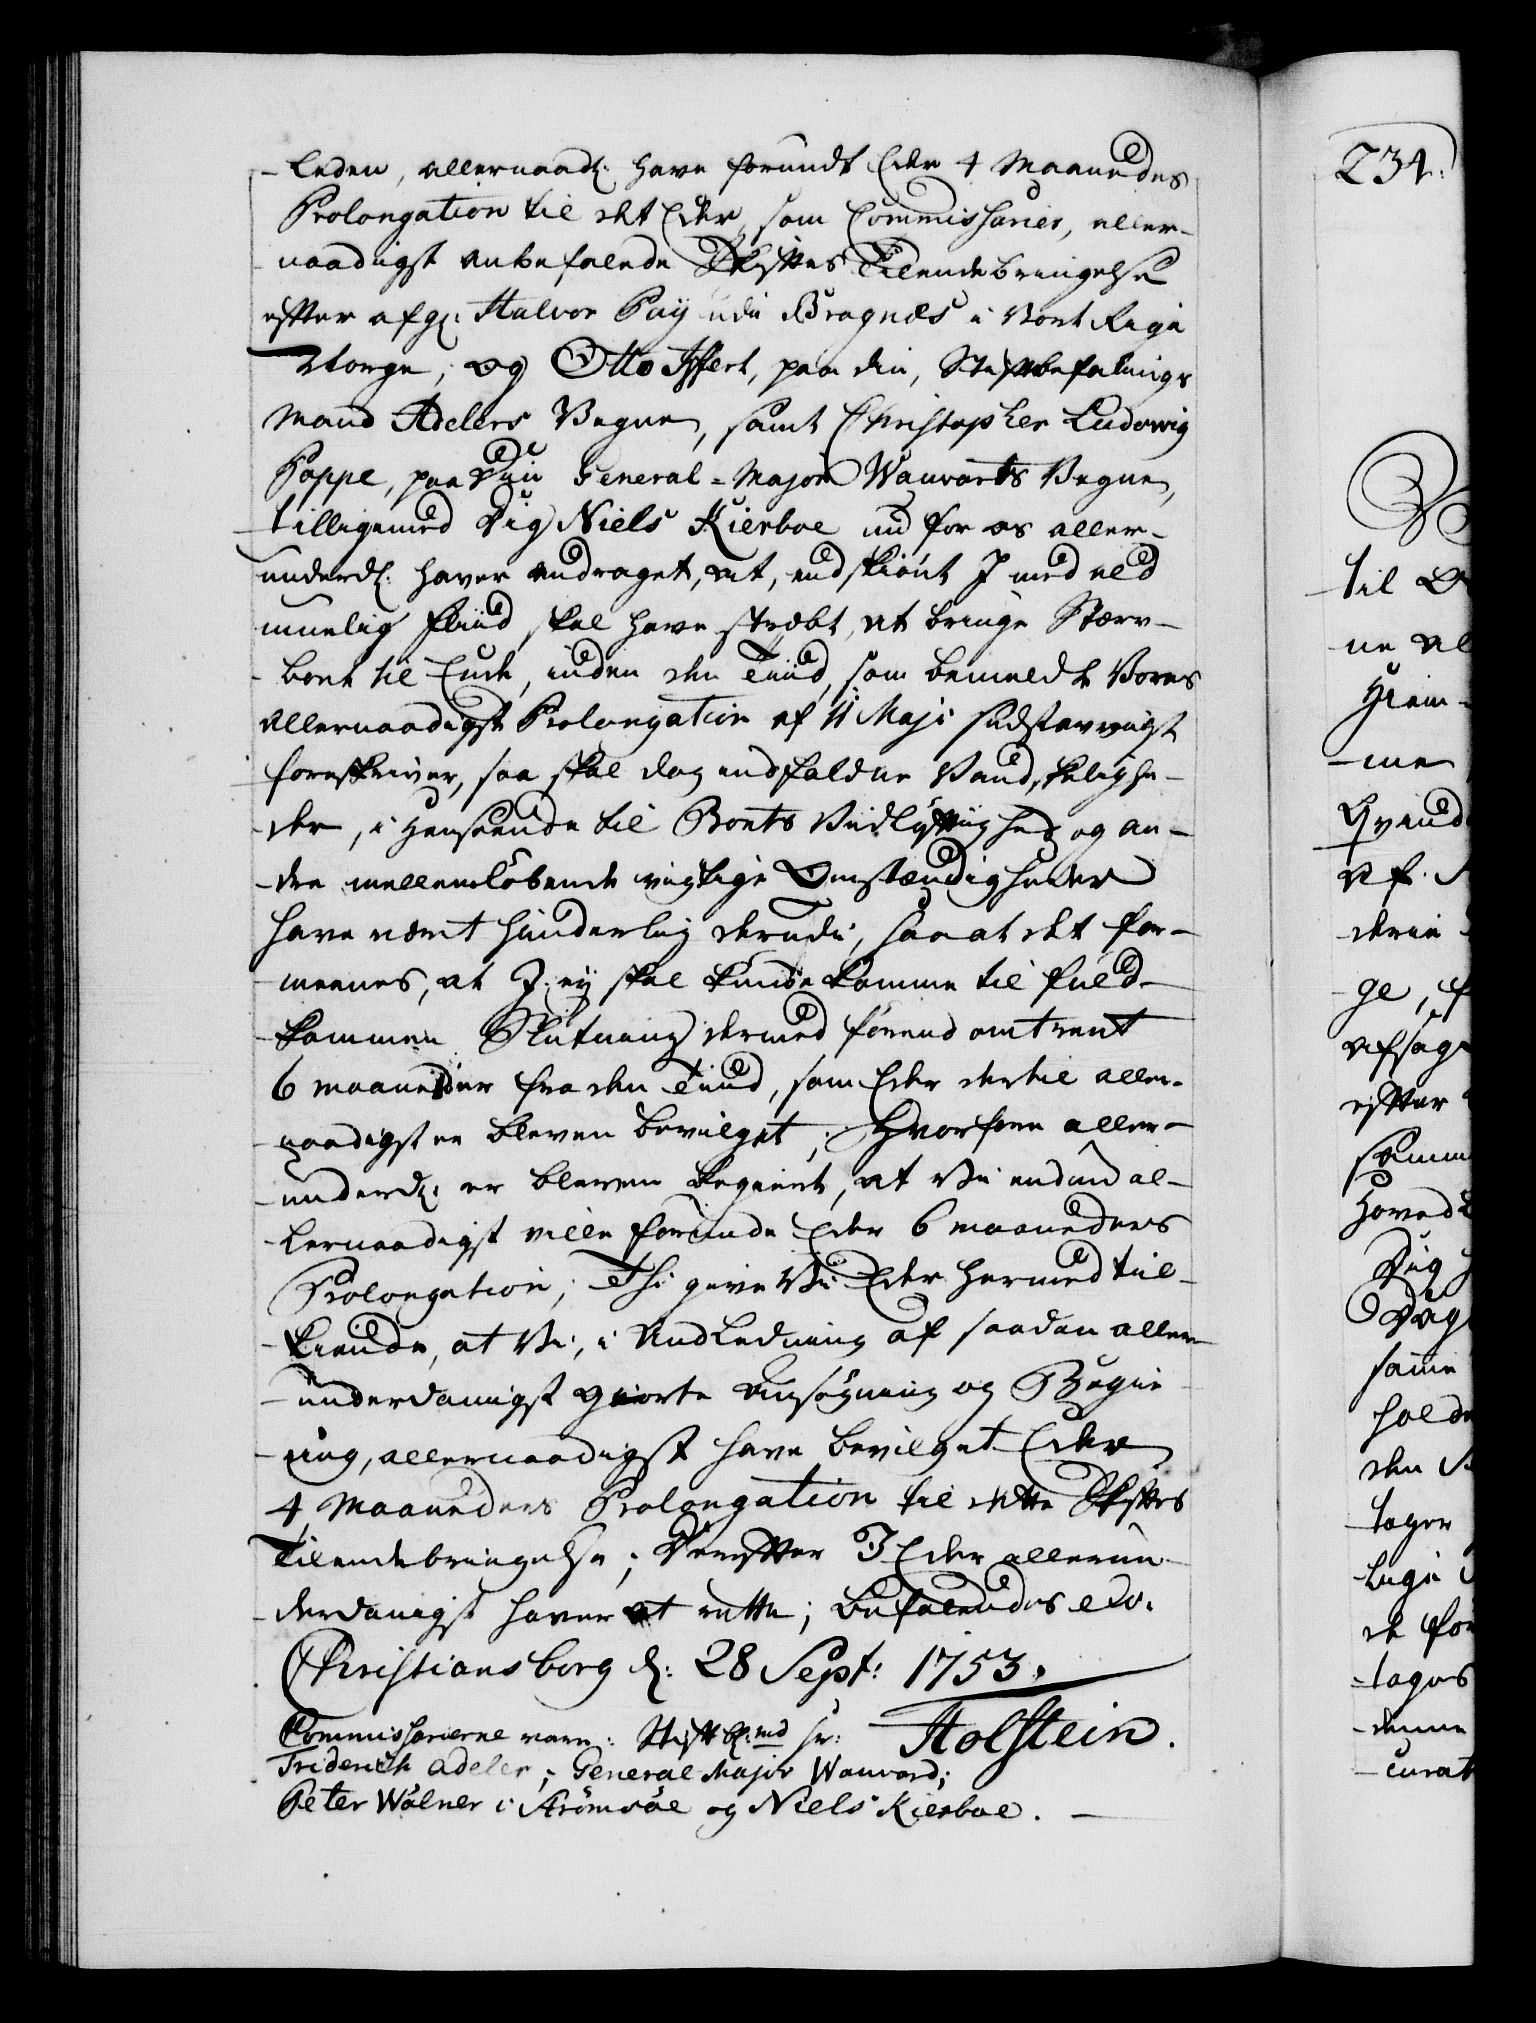 -leden, allernaad: have forundt Eder 4 Maaneders
Prolongation til det Eder, som Commissarier, aller-
naadigst anbefalede Skiftes Tilendebringelse
efter afg: Halvor Paÿ udi Bragnes i Vort Rige
Norge; og Otto Iffert, paa din, Stiftbefalings
Mand Adelers Vegne, samt Christopher Ludewig
Poppe, paa Din General-Major Wauvarts Vegne,
tilligemed Dig Niels Kierboe nu for os aller-
underd: haver andraget, at, endskiönt I med ald
muelig fliid skal have stræbt, at bringe Stærv-
boet til Ende, inden den Tiid, som bemeldte Vores
allernaadigst Prolongation af 11 Maji sidstævigt
foreskriver, saa skal dog indfaldne Vanskelighe-
der, i Henseende til Boets Vidløftighed og an-
dre mellemløbende vigtige Omstændigheder
have været hinderlig derudi, saa at det for-
meenes, at I ey skal kunde komme til fuld-
kommen Slutning dermed förend omtrent
6 maaneder fra den Tiid, som Eder dertil aller-
naadigst er bleven bevilget; Hvorfore aller-
underd: er bleven begiert, at Vi endnu al-
lernaadigst ville forunde Eder 6 maaneders
Prolongation; Thi give Vi Eder hermed til-
kiende, at Vi, i Andledning af saadan aller
underdanigst giorte Ansøgning og Begie-
ring, allernaadigst have bevilget Eder
4 Maaneders Prolongation til dette Skiftes
Tilendebringelse; Derefter I Eder allerun-
derdanigst haver at rette; Befalendes etc.
Christiansborg d: 28 Sept: 1753.
Holstein.
Commissarierne vare: Stiftbf:md hr:
Friderich Adeler; General Major Wauvard;
Peter Wölner i Strömsöe og Niels Kierboe.
234.
til
ne
-me
af
derie
ge,
afsag
efter
Hoved
Dig
samme
holde
den
tager
lige
de for
-tages
denne
-curat